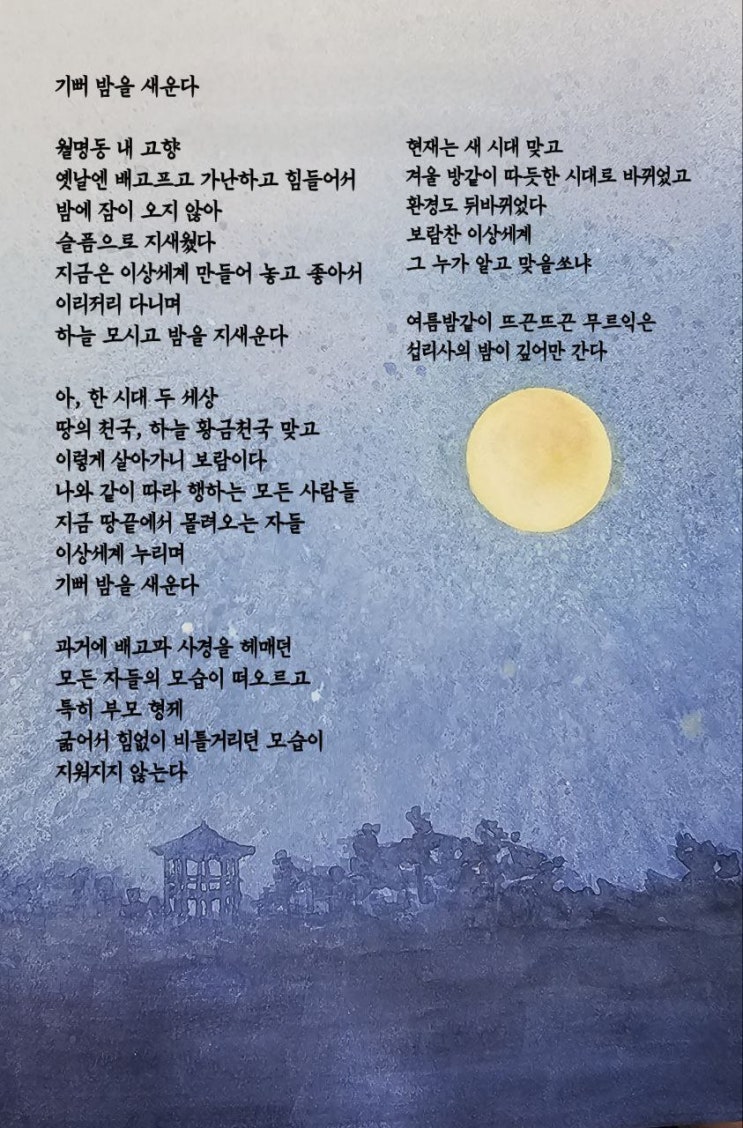 기뻐 밤을 새운다
월명동 내 고향
옛날엔 배고프고 가난하고 힘들어서
밤에 잠이 오지 않아
슬픔으로 지새웠다
지금은 이상세계 만들어 놓고 좋아서
이리저리 다니며
하늘 모시고 밤을 지새운다
아, 한 시대 두 세상
땅의 천국, 하늘 황금천국 맞고
이렇게 살아가니 보람이다
나와 같이 따라 행하는 모든 사람들
지금 땅끝에서 몰려오는 자들
이상세계 누리며
기뻐 밤을 새운다
과거에 배고파 사경을 헤매던
모든 자들의 모습이 떠오르고
특히 부모 형제
굶어서 힘없이 비틀거리던 모습이
지워지지 않는다
현재는 새 시대 맞고
겨울 방같이 따듯한 시대로 바뀌었고
환경도 뒤바뀌었다
보람찬 이상세계
그 누가 알고 맞을쏘냐
여름밤같이 뜨끈뜨끈 무르익은
섭리사의 밤이 깊어만 간다